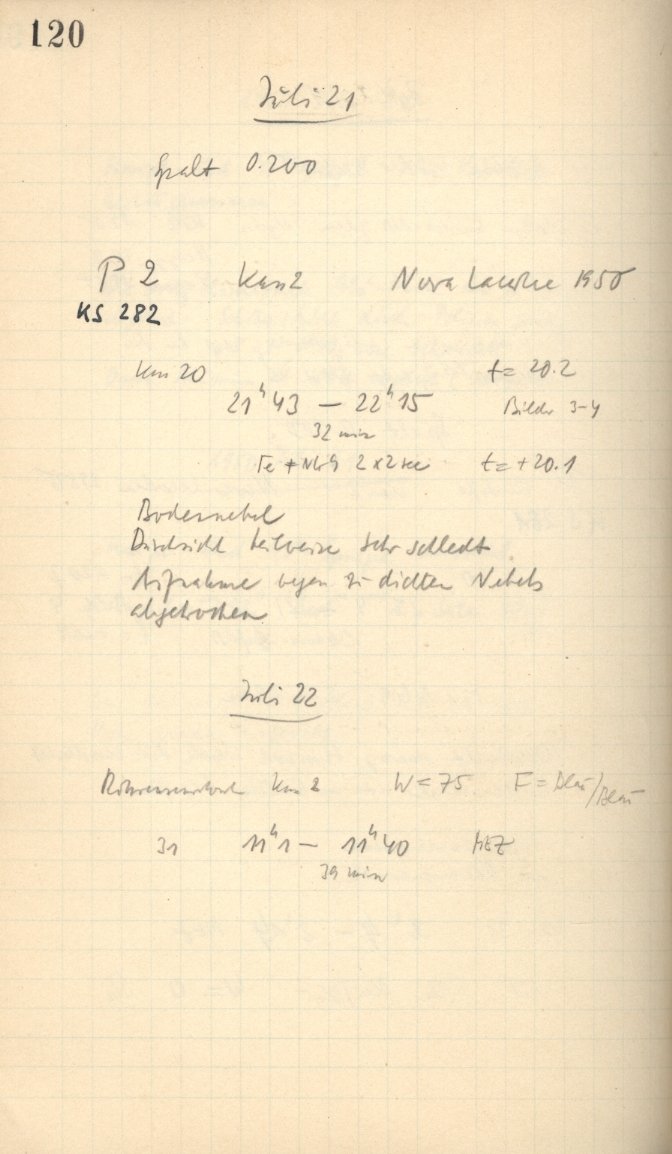 120
Juli 21
Spalt 0.200
P 2 Kam 2 Nova Lacertae 1950
KS 282
Km 20 t = 20.2
21h 43 — 22h 15 Bilder 3-4
32 min
Fe + 2x2 sec t = +20.1
Bodennebel
Durchsicht teilweise sehr schlecht
Aufnahme wegen zu dichten Nebels
abgebrochen
Juli 22
Kam 2 W = 75 F = Blau/Blau
31 11h 1 — 11h 40 MEZ
39 min